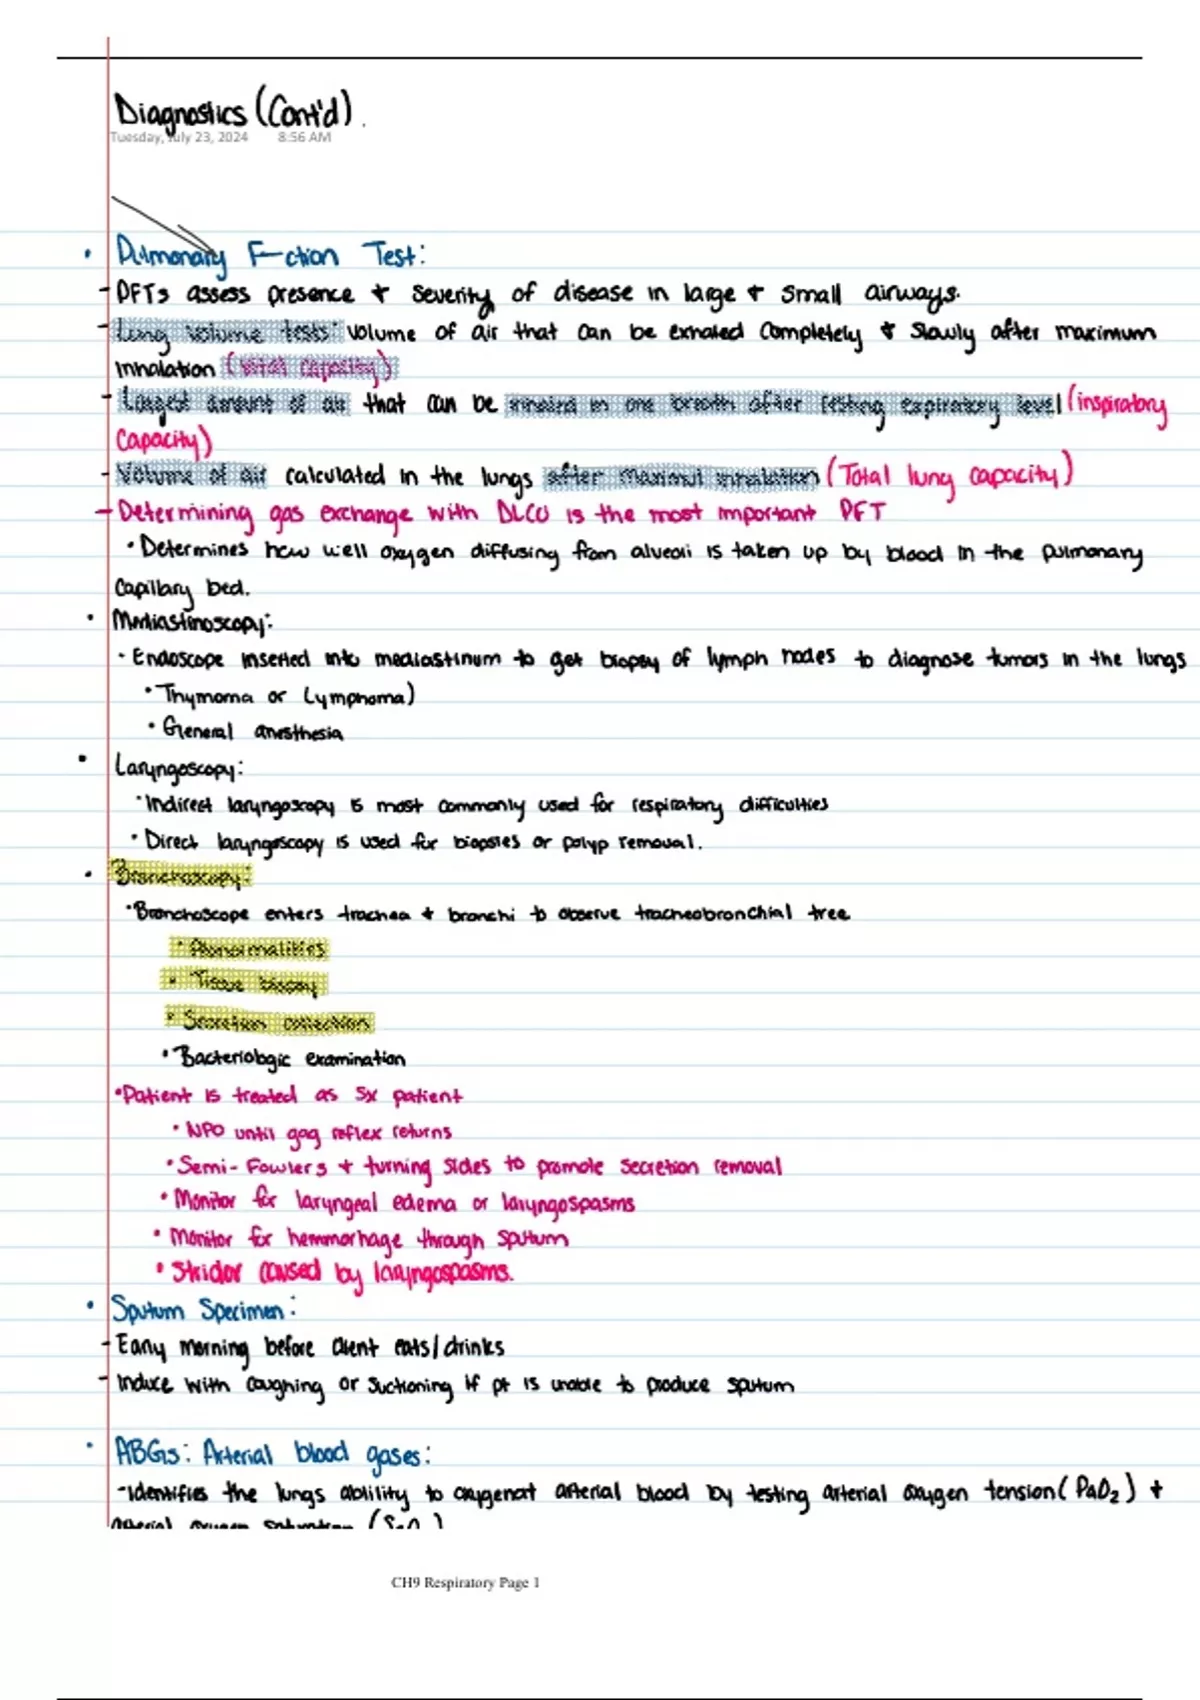 Diagnostics (Cont'd).
Tuesday, July 23, 2024 8:56 AM
• Pulmonary F—ction Test:
- PFTs assess presence + severity of disease in large + small airways.
- Lung volume tests: volume of air that can be exhaled completely + slowly after maximum
inhalation (vital capacity)
- Largest amount of air that can be inhaled in one breath after resting expiratory level (inspiratory
capacity)
- Volume of air calculated in the lungs after maximal inhalation (Total lung capacity)
- Determining gas exchange with DLCO is the most important PFT
• Determines how well oxygen diffusing from alveoli is taken up by blood in the pulmonary
capillary bed.
• Mediastinoscopy:
• Endoscope inserted into mediastinum to get biopsy of lymph nodes to diagnose tumors in the lungs
• Thymoma or Lymphoma)
• General anesthesia
• Laryngoscopy:
• Indirect laryngoscopy is most commonly used for respiratory difficulties
• Direct laryngoscopy is used for biopsies or polyp removal.
• Bronchoscopy:
• Bronchoscope enters trachea + bronchi to observe tracheobronchial tree
• Abnormalities
• Tissue biopsy
• Secretion collection
• Bacteriologic examination
• Patient is treated as Sx patient
• NPO until gag reflex returns
• Semi-Fowlers + turning sides to promote secretion removal
• Monitor for laryngeal edema or laryngospasms
• Monitor for hemmorhage through sputum
• Stridor caused by laryngospasms.
• Sputum Specimen:
- Early morning before client eats/drinks
- Induce with coughing or suctioning if pt is unable to produce sputum
• ABGs: Arterial blood gases:
- Identifies the lungs ablility to oxygenat arterial blood by testing arterial oxygen tension (PaO₂) +
arterial oxygen saturation
CH9 Respiratory Page 1